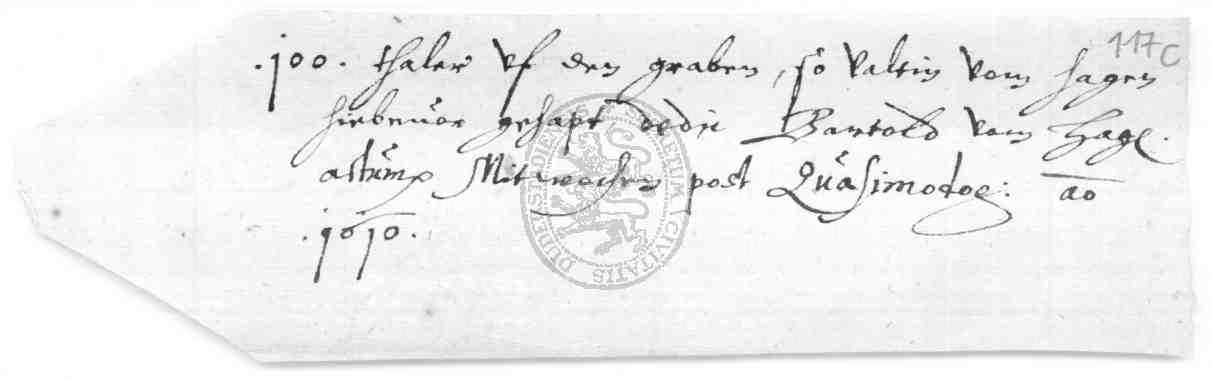 117c
.100. thaler vf den graben, so Valtin vom Hagen
hiebeuor gehapt dedit Bartold vom Hage.
actum Mitwochen post Quasimodog: ao
.1610.
DUDERSTADIENSIS CIVITATIS